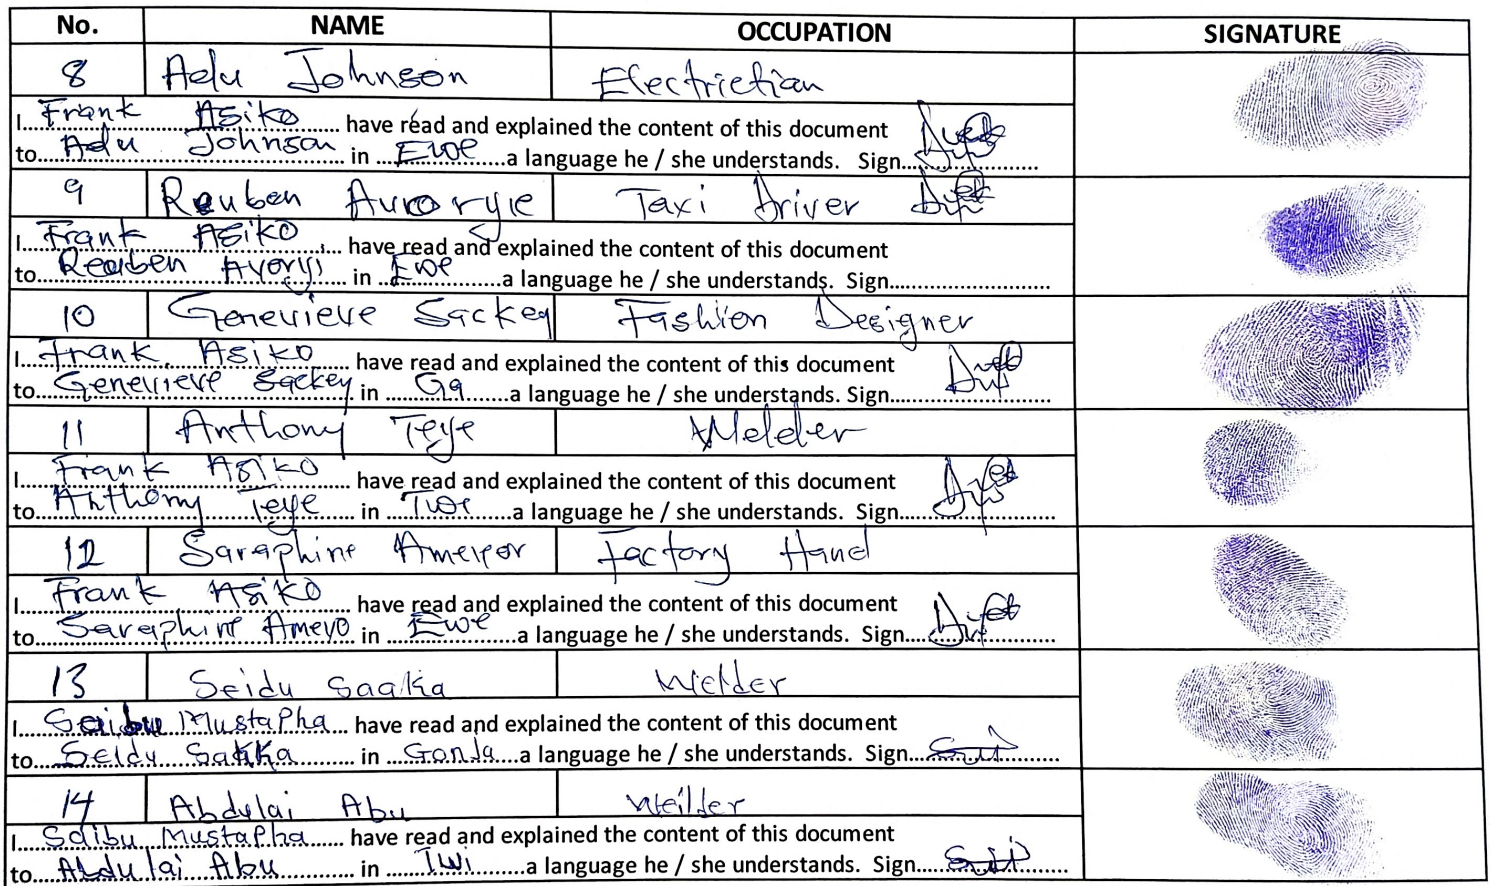 No. NAME OCCUPATION SIGNATURE
8 Adu Johnson Electrictian
I...Frank Asiko... have read and explained the content of this document
to...Adu Johnson... in ...Ewe...a language he / she understands. Sign...
9 Reuben Avorgyie Taxi Driver
I...Frank Asiko... have read and explained the content of this document
to...Reuben Avorgyi... in ...Ewe...a language he / she understands. Sign...
10 Genevieve Sackey Fashion Designer
I...Frank Asiko... have read and explained the content of this document
to...Genevieve Sackey in ...Ga...a language he / she understands. Sign...
11 Anthony Teye Welder
I...Frank Asiko... have read and explained the content of this document
to...Anthony Teye... in ...Twe...a language he / she understands. Sign...
12 Saraphine Amevor Factory Hand
I...Frank Asiko... have read and explained the content of this document
to...Saraphine Amevo in ...Ewe...a language he / she understands. Sign...
13 Seidu Saaka Welder
I...Saibu Mustapha... have read and explained the content of this document
to...Seidu Sakka... in ...Gonja...a language he / she understands. Sign...
14 Abdulai Abu Weilder
I...Saibu Mustapha... have read and explained the content of this document
to...Abdulai Abu... in ...Twi...a language he / she understands. Sign...